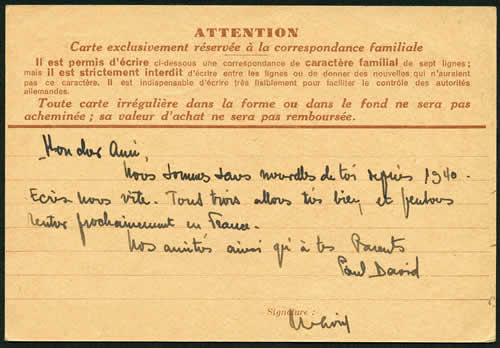 ATTENTION
Carte exclusivement réservée à la correspondance familiale
Il est permis d'écrire ci-dessous une correspondance de caractère familial de sept lignes;
mais il est strictement interdit d'écrire entre les lignes ou de donner des nouvelles qui n'auraient
pas ce caractère. Il est indispensable d'écrire très lisiblement pour faciliter le contrôle des autorités
allemandes.
Toute carte irrégulière dans la forme ou dans le fond ne sera pas
acheminée; sa valeur d'achat ne sera pas remboursée.
Mon cher Ami,
Nous sommes sans nouvelles de toi depuis 1940.
Ecris nous vite. Tous trois allons très bien et pensons
rentrer prochainement en France.
Nos amitiés ainsi qu'à tes Parents
Paul David
Signature: